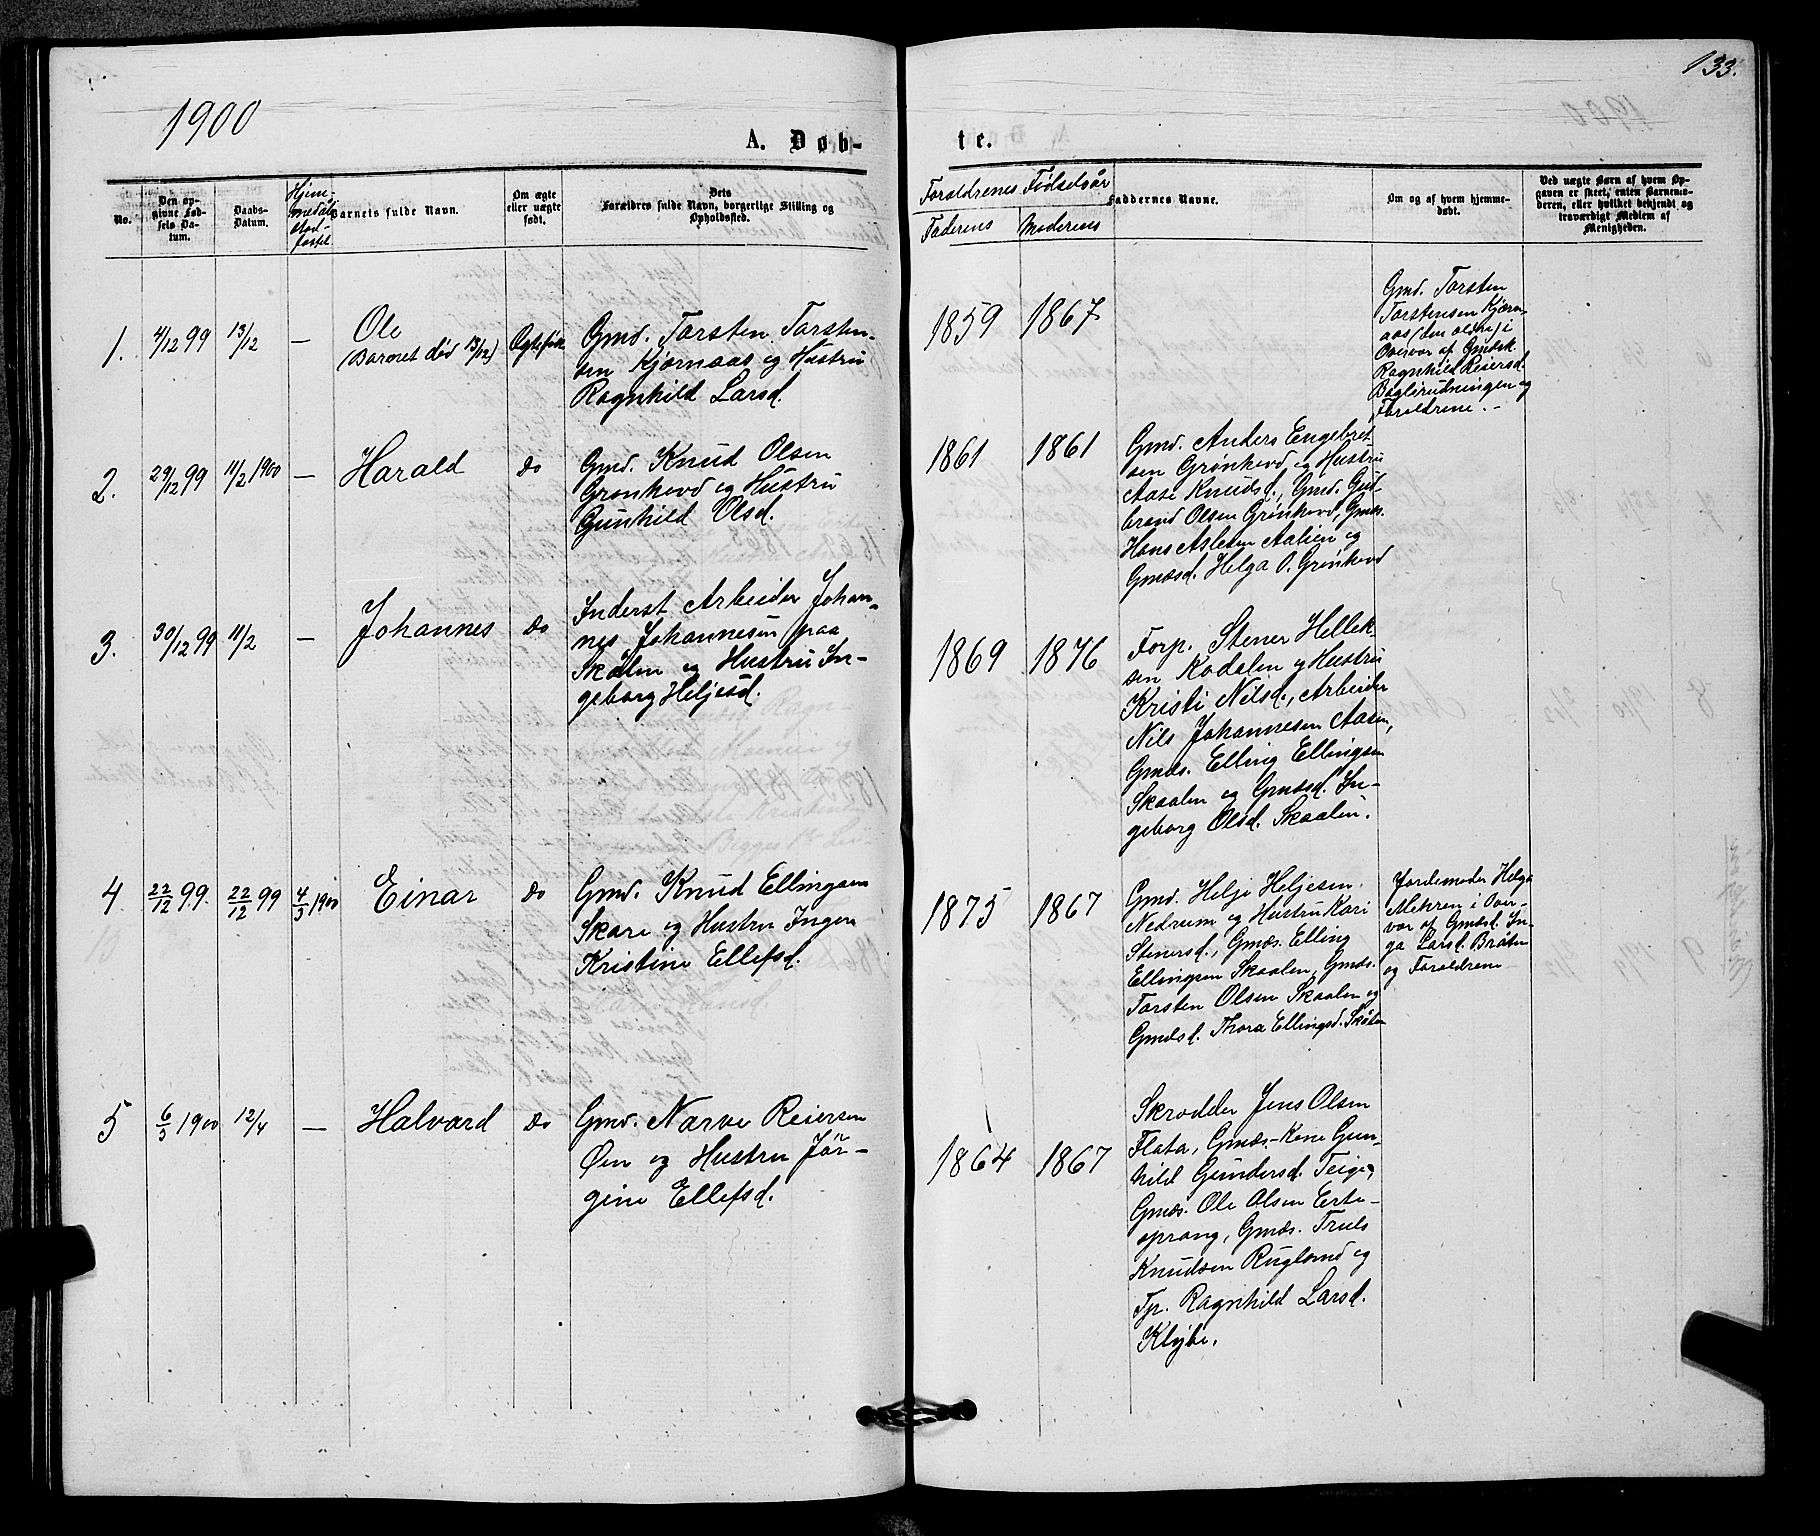 133.
1900
A. Døb-
te.
No.
Den op-
givne Fød-
sels Da-
tum.
Daabs-
Datum.
Hjem-
medåb
stad-
fæstet
Barnets fulde Navn.
Om ægte
eller uægte
født.
Dets
Forældres fulde Navn, borgerlige Stilling og
Opholdssted.
Forældrenes Fødselsår
Faderens
Moderens
Faddernes Navne.
Om og af hvem hjemme-
døbt.
Ved uægte Børn af hvem Op-
gaven er skeet, enten Barnemo-
deren, eller hvilket bekjendt og
troværdigt Medlem af
Menigheden.
1.
4/12 99
13/12
—
Ole
(Barnet død 13/12)
Ægtefødt
Gmd. Torsten Torsten-
sen Kjørnaas og Hustru
Ragnhild Larsd.
1859
1867
Gmd. Torsten
Torstensen Kjørn-
aas (den ældre) i
Overvær af Gmdsk.
Ragnhild Reiersd.
Baglirudningen og
Forældrene. -
2.
29/12 99
11/2 1900
—
Harald
do
Gmd. Knud Olsen
Grønhovd og Hustru
Gunhild Olsd.
1861
1861
Gmd. Anders Engebret-
sen Grønhovd og Hustru
Aase Knudsd., Gmd. Gud-
brand Olsen Grønhovd, Gmds.
Hans Aslesen Aalien og
Gmdsd. Helga O. Grønhovd
3.
30/12 99
11/2
—
Johannes
do
Inderst Arbeider Johan-
nes Johannesen paa
Skålen og Hustru In-
geborg Heljesd.
1869
1876
Forp. Stener Hellek-
sen Kodalen og Hustru
Kristi Nilsd., Arbeider
Nils Johannesen Aasen,
Gmds. Elling Ellingsen
Skaalen og Gmdsd. In-
geborg Olsd. Skaalen.
4
22/12 99.
22/12 99
4/3 1900
Einar
do
Gmd. Knud Ellingsen
Skare og Hustru Inger
Kristine Ellefsd.
1875
1867
Gmd. Helje Heljesen
Nedrum og Hustru Kari
Stenersd., Gmds. Elling
Ellingsen Skaalen, Gmds.
Torsten Olsen Skaalen og
Gmdsd. Thora Ellingsd. Skålen
Jordemoder Helga
Mehren i Over-
vær af Gmdsd. In-
ga Larsd. Bråten
og Forældrene
5
6/3 1900
12/4
—
Halvard
do
Gmd. Narve Reiersen
Øen og Hustru Jør-
gine Ellefsd.
1864
1867
Skrædder Jens Olsen
Flata, Gmds-Kone Gun-
hild Gundersd. Teige,
Gmds. Ole Olsen Erte-
sprang, Gmds. Truls
Knudsen Rugland og
Tp. Ragnhild Larsd.
Klybe.